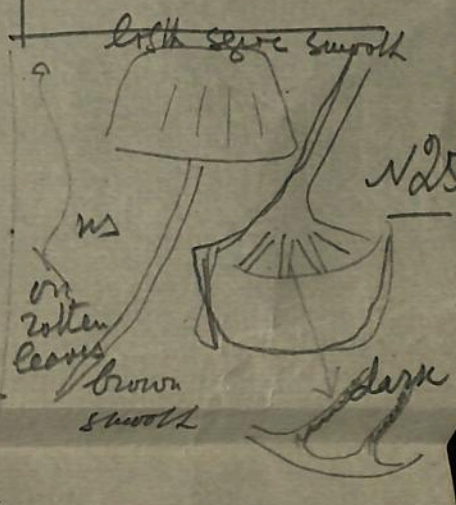 smooth
N25
ns
on
rotten
leaves
brown
smooth
dark